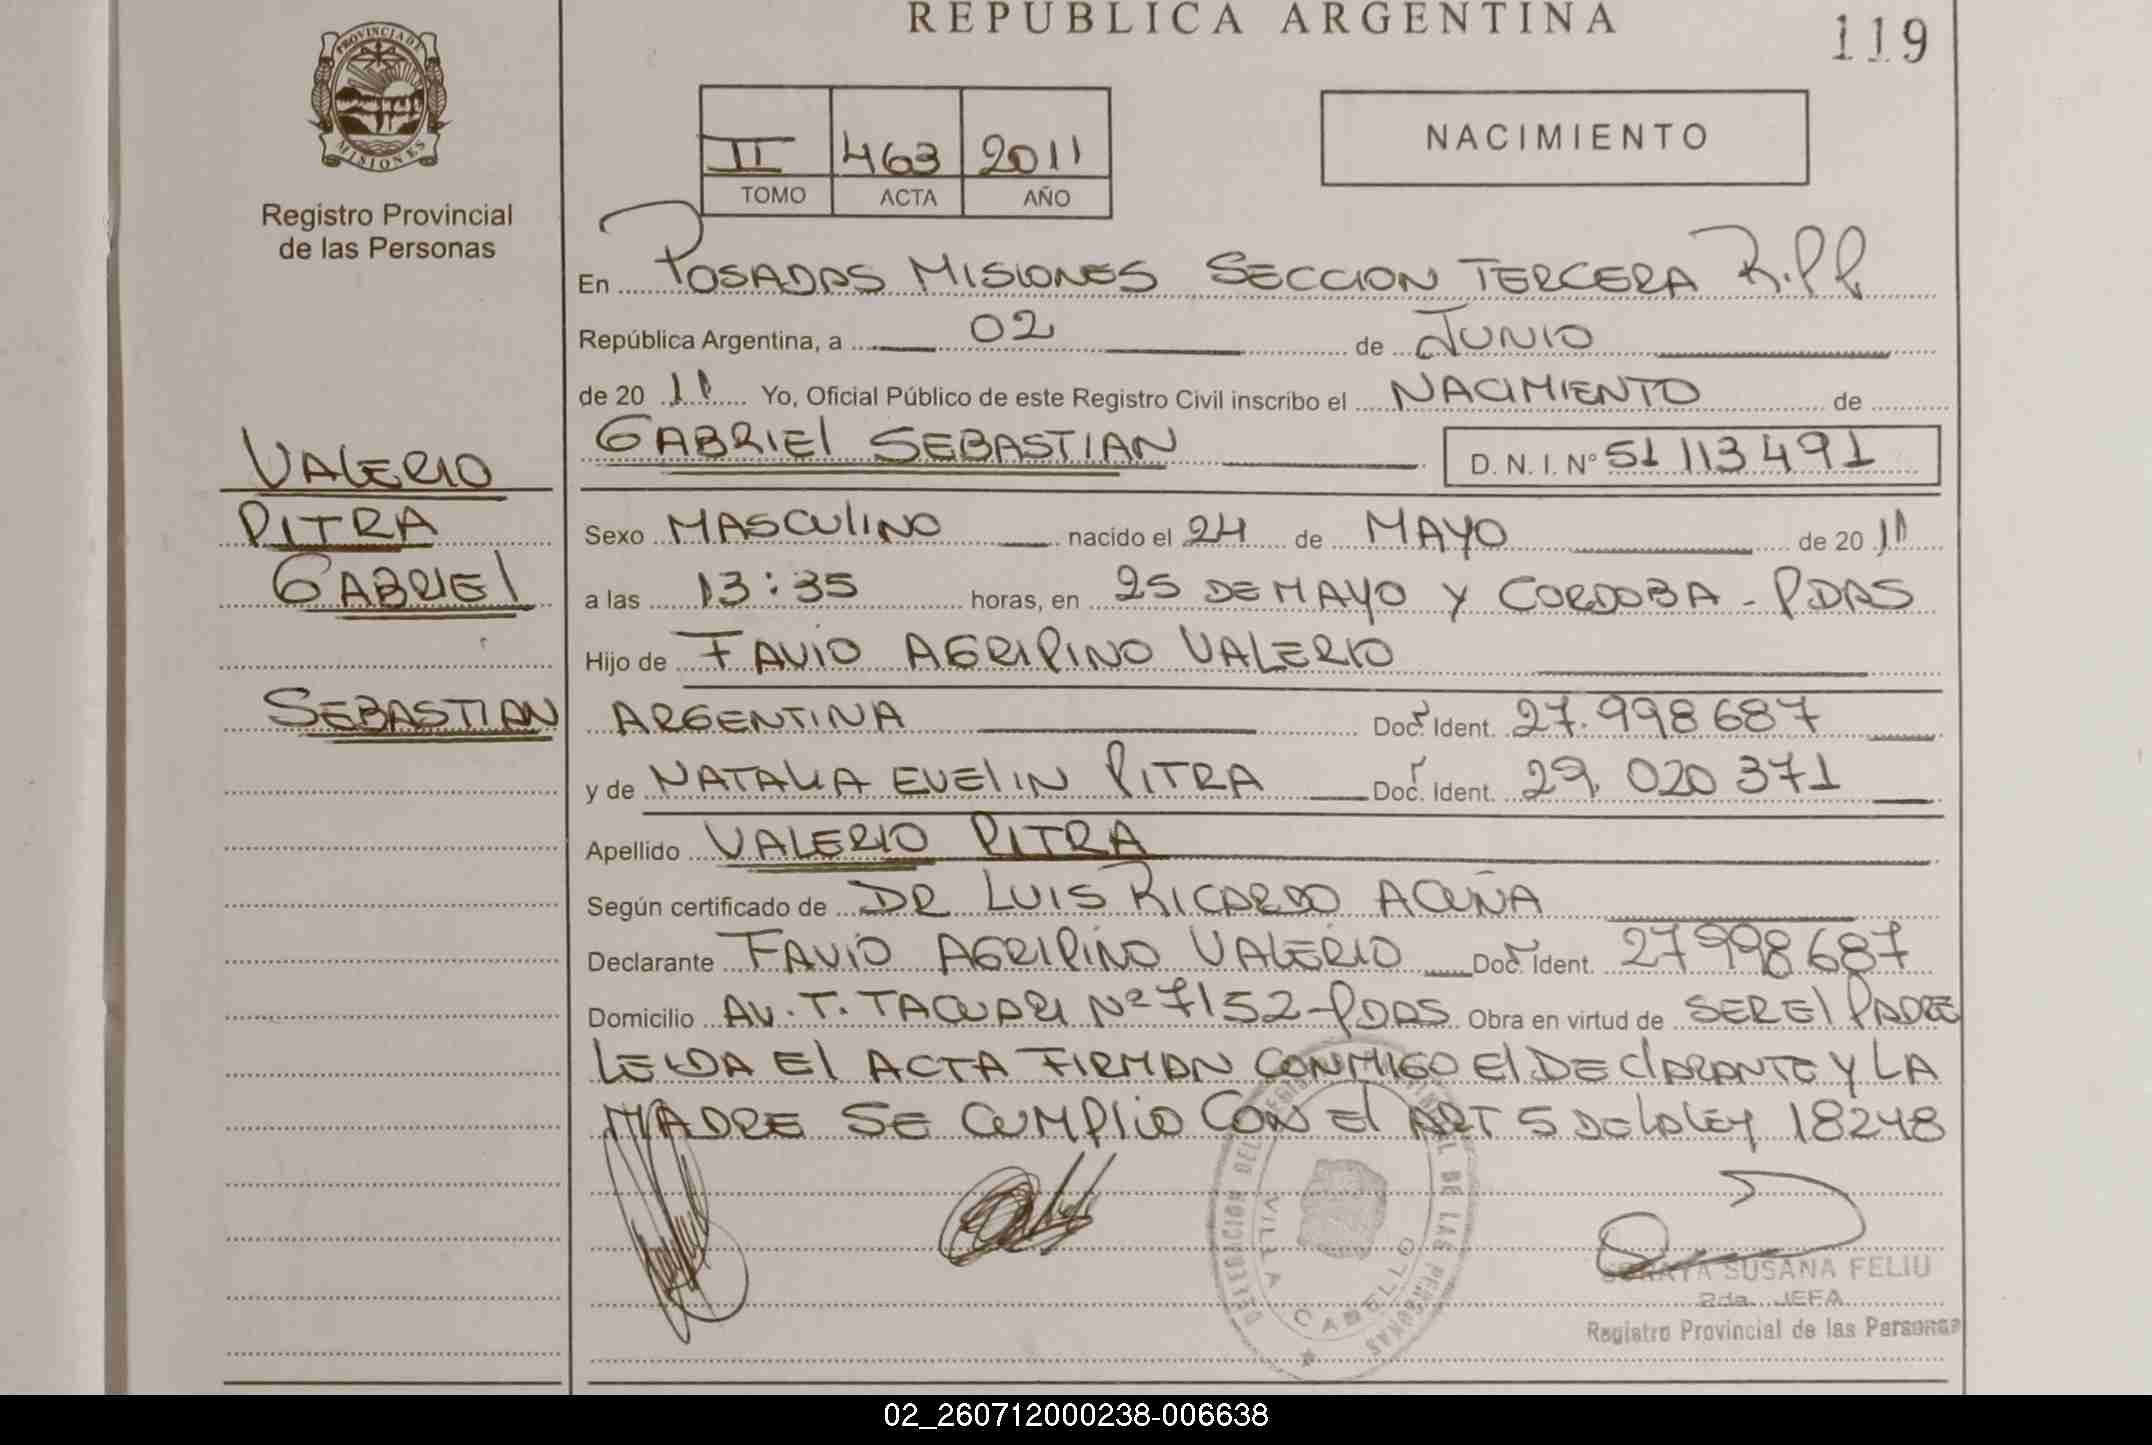 REPUBLICA ARGENTINA
119
PROVINCIA DE
MISIONES
Registro Provincial
de las Personas
II 463 2011
TOMO ACTA AÑO
NACIMIENTO
En POSADAS MISIONES SECCION TERCERA R.P.P
República Argentina, a 02 de JUNIO
de 20 11 Yo, Oficial Público de este Registro Civil inscribo el NACIMIENTO de
GABRIEL SEBASTIAN D. N. I. Nº 51 113 491
VALERIO
PITRA
GABRIEL
SEBASTIAN
Sexo MASCULINO nacido el 24 de MAYO de 20 11
a las 13:35 horas, en 25 DE MAYO Y CORDOBA - PDAS
Hijo de FAVIO AGRIPINO VALERIO
ARGENTINA Doc. Ident. 27.998687
y de NATALIA EVELIN PITRA Doc. Ident. 29.020 371
Apellido VALERIO PITRA
Según certificado de DR LUIS RICARDO ACUÑA
Declarante FAVIO AGRIPINO VALERIO Doc. Ident. 27998687
Domicilio AV. T. TACUARI Nº 7152-PDAS Obra en virtud de SER El PADRE
LEIDA El ACTA FIRMAN CONMIGO El DEClARANTE Y LA
MADRE SE CUMPlIO CON El ART 5 DE lA lEY 18248
DELEGACION DEL REGISTRO PROVINCIAL DE LAS PERSONAS
VILLA CABELLO
SORAYA SUSANA FELIU
2da. JEFA
Registro Provincial de las Personas
02_260712000238-006638